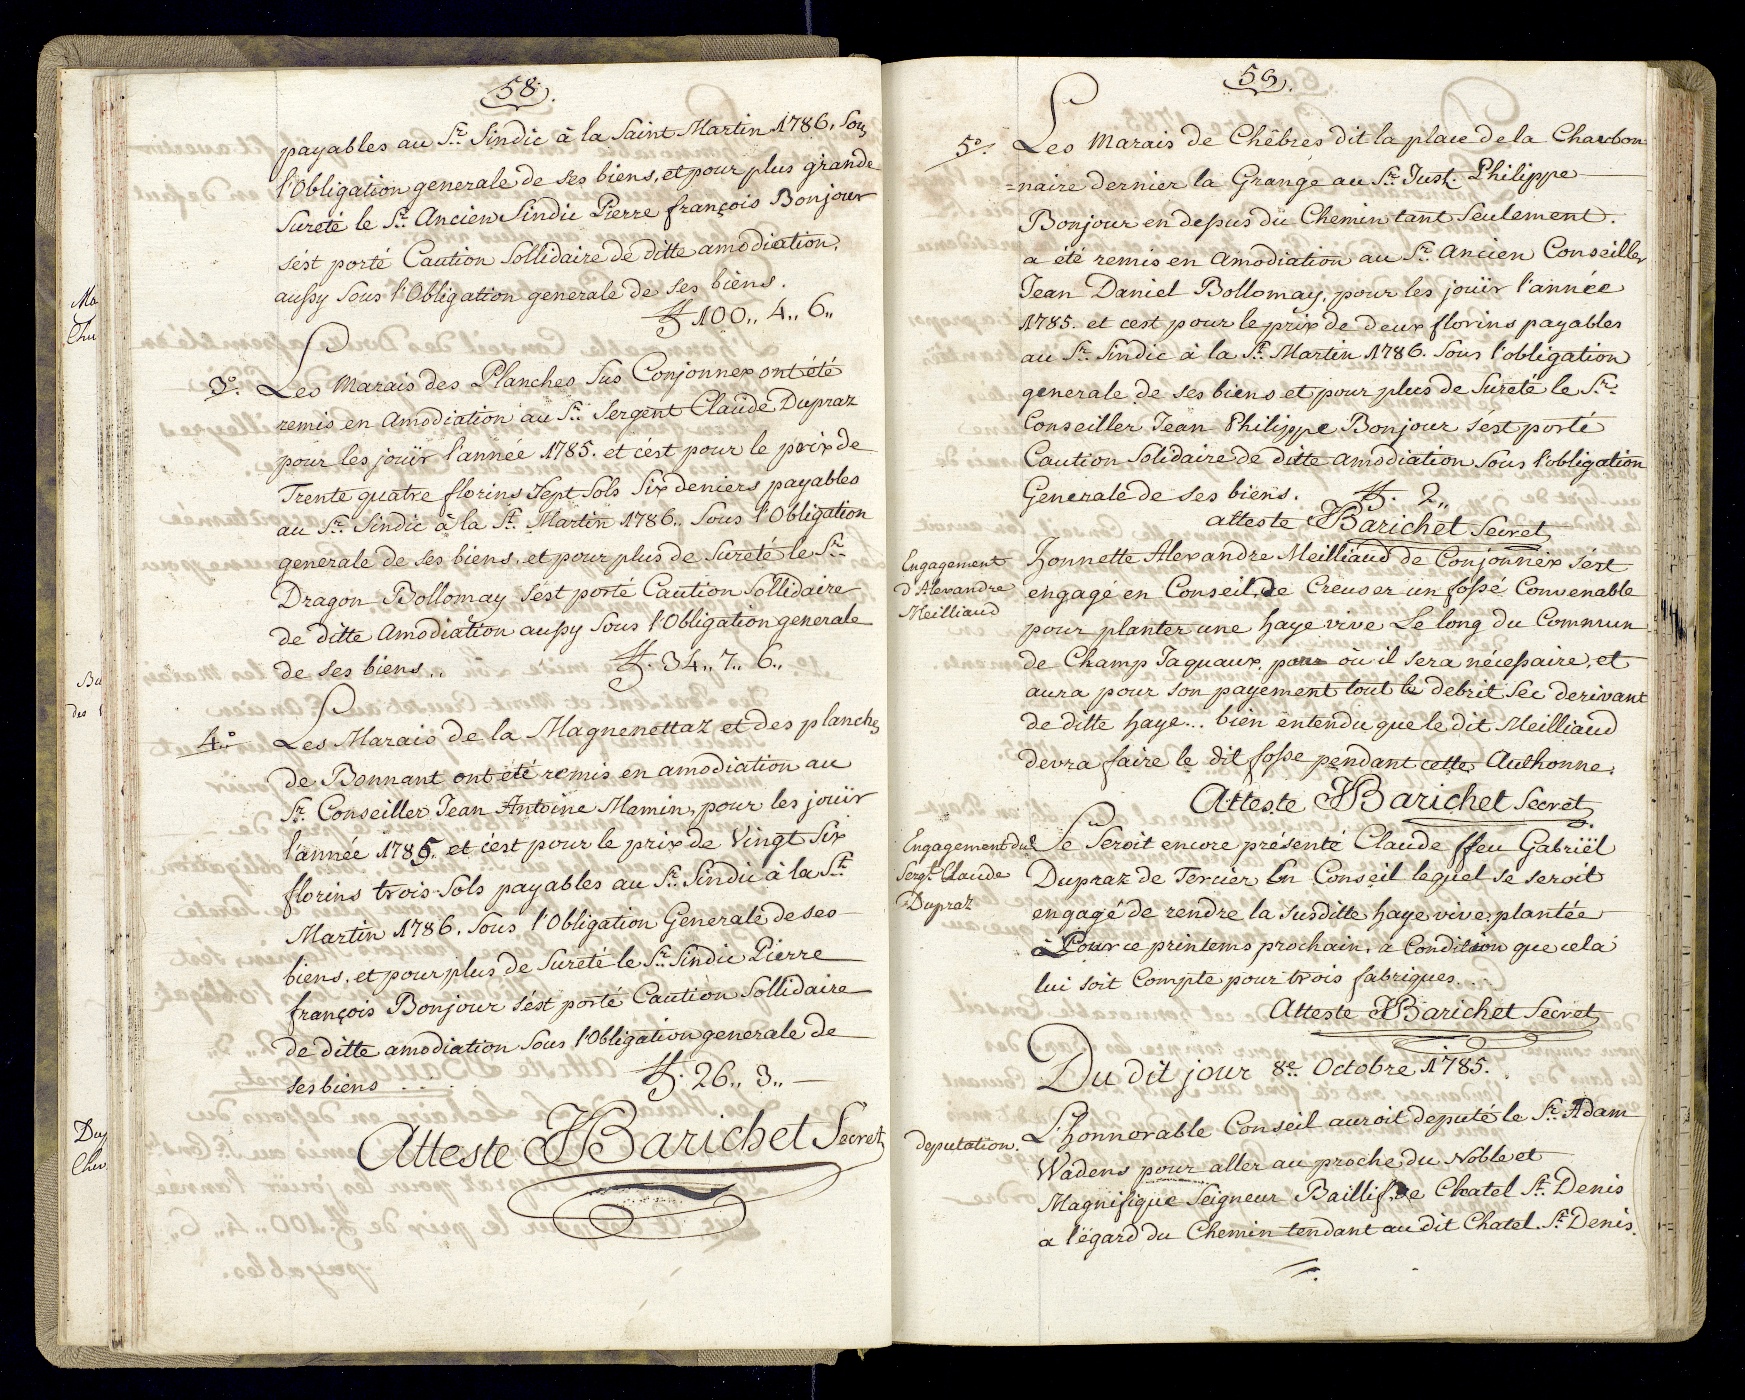 58.
payables au Sr. Sindic à la Saint Martin 1786, sous
l'Obligation generale de ses biens, et pour plus grande
Sureté le Sr. Ancien Sindic Pierre françois Bonjour
s'ést porté Caution Sollidaire de ditte amodiation,
aussy sous l'Obligation generale de ses biens.
ff 100,, 4,, 6,,
3º. Les Marais des Planches sus Conjonnex ont été
remis en Amodiation au Sr. Sergent Claude Dupraz
pour les jouïr l'année 1785. et c'ést pour le prix de
Trente quatre florins Sept Sols Six deniers payables
au Sr. Sindic à la St. Martin 1786., Sous l'Obligation
generale de ses biens, et pour plus de Sureté le Sr.
Dragon Bollomay s'ést porté Caution Sollidaire
de ditte Amodiation aussy Sous l'Obligation generale
de ses biens.. ff. 34,, 7,, 6,,
4º. Les Marais de la Magnenettaz et des planches
de Bonnant ont été remis en amodiation au
Sr. Conseiller Jean Antoine Mamin, pour les jouïr
l'année 1785. et c'ést pour le prix de Vingt Six
florins trois Sols payables au Sr. Sindic à la St.
Martin 1786, Sous l'Obligation Generale de ses
biens, et pour plus de Sureté le Sr. Sindic Pierre
françois Bonjour s'ést porté Caution Sollidaire
de ditte amodiation Sous l'Obligation generale de
ses biens . . . . ff. 26,, 3,, —
Atteste JFBarichet Secret.
59.
5º. Les Marais de Chêbres dit la place de la Charbon
=naire dernier la Grange au Sr. Just. Philippe
Bonjour en dessus du Chemin tant Seulement.
a été remis en Amodiation au Sr. Ancien Conseiller
Jean Daniel Bollomay, pour les jouïr l'année
1785. et cest pour le prix de deux florins payables
au Sr. Sindic à la St. Martin 1786. Sous l'obligation
generale de ses biens et pour plus de Sureté le Sr.
Conseiller Jean Philippe Bonjour s'ést porté
Caution Solidaire de ditte Amodiation Sous l'obligation
Generale de ses biens. ff. 2,,
atteste JFBarichet Secret.
Engagement
d'Alexandre
Meilliaud
Honnette Alexandre Meilliaud de Conjonnex s'ést
engagé en Conseil, de Creuser un fossé Convenable
pour planter une haye vive Le long du Commun
de Champ Jaquaux, où il sera nécessaire, et
aura pour son payement tout le debrit Sec derivant
de ditte haye... bien entendu que le dit Meilliaud
devra faire le dit fosse pendant cette Authonne.
Atteste JFBarichet Secret.
Engagement du
Sergt. Claude
Dupraz
Se Seroit encore présenté Claude ffeu Gabriël
Dupraz de Tercier En Conseil lequel se seroit
engagé de rendre la Susditte haye vive, plantée
Pour ce printems prochain, a Condition que cela
lui soit Compte pour trois fabriques. . .
Atteste JFBarichet Secret.
Du dit jour 8e. Octobre 1785.
deputation.
L'honnorable Conseil auroit deputé le Sr. Adam
Wadens pour aller au proche du Noble et
Magnifique Seigneur Baillif de Chatel St. Denis
a l'égard du Chemin tendant au dit Chatel St. Denis.